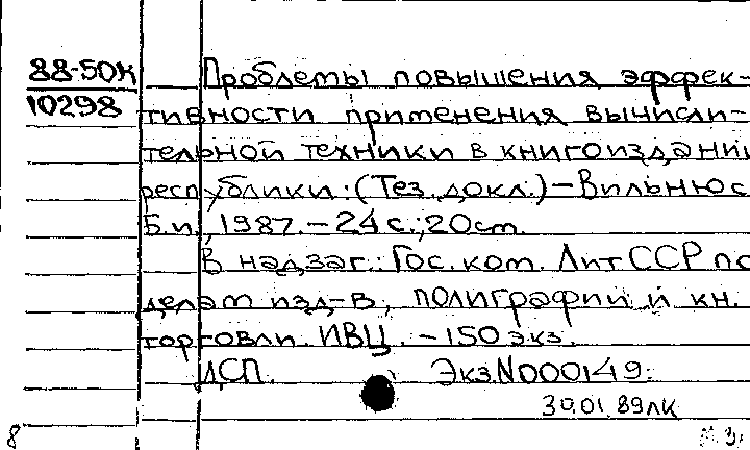 88-50К Проблемы повышения эффек-
10298 тивности применения вычисли-
тельной техники в книгоиздании
республики: (Тез. докл.) – Вильнюс
Б.и., 1987. – 24 с.; 20 cm.
В надзаг.: Гос. ком. ЛитССР по
делам изд-в, полиграфии и кн.
торговли. ИВЦ. – 150 экз.
ДСП. Экз. N000149.
30.01.89ЛК
8